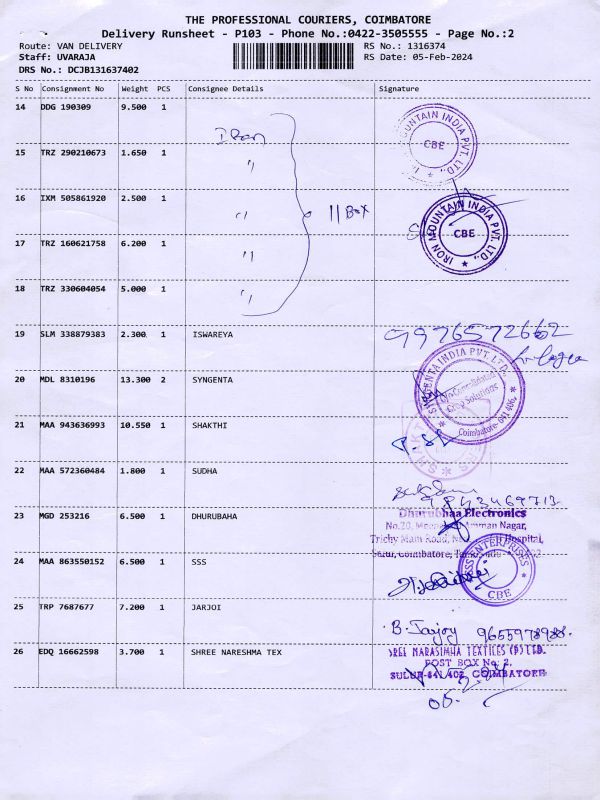 THE PROFESSIONAL COURIERS, COIMBATORE
Delivery Runsheet - P103 - Phone No.:0422-3505555 - Page No.:2
Route: VAN DELIVERY RS No.: 1316374
Staff: UVARAJA RS Date: 05-Feb-2024
DRS No.: DCJB131637402
S No Consignment No Weight PCS Consignee Details Signature
14 DDG 190309 9.500 1
15 TRZ 290210673 1.650 1 "
16 IXM 505861920 2.500 1 "
11 Box
17 TRZ 160621758 6.200 1 "
18 TRZ 330604054 5.000 1 "
IRON MOUNTAIN INDIA PVT. LTD.,
CBE
IRON MOUNTAIN INDIA PVT. LTD.,
CBE
19 SLM 338879383 2.300 1 ISWAREYA 9976572662
20 MDL 8310196 13.300 2 SYNGENTA
SYNGENTA INDIA PVT. LTD.
Crop Solutions
Coimbatore-641 406.
21 MAA 943636993 10.550 1 SHAKTHI
22 MAA 572360484 1.800 1 SUDHA
9843469713
23 MGD 253216 6.500 1 DHURUBAHA
Dhurubhaa Electronics
No.20, Amman Nagar,
Trichy Main Road, Hospital,
Sulur, Coimbatore,
24 MAA 863550152 6.500 1 SSS
SSS ENTERPRISES
CBE
25 TRP 7687677 7.200 1 JARJOI
B. Jarjoy 9655978988.
26 EDQ 16662598 3.700 1 SHREE NARESHMA TEX
SREE NARASIMHA TEXTILES (P) LTD.
POST BOX No: 2,
SULUR-641 402, COIMBATORE
05.